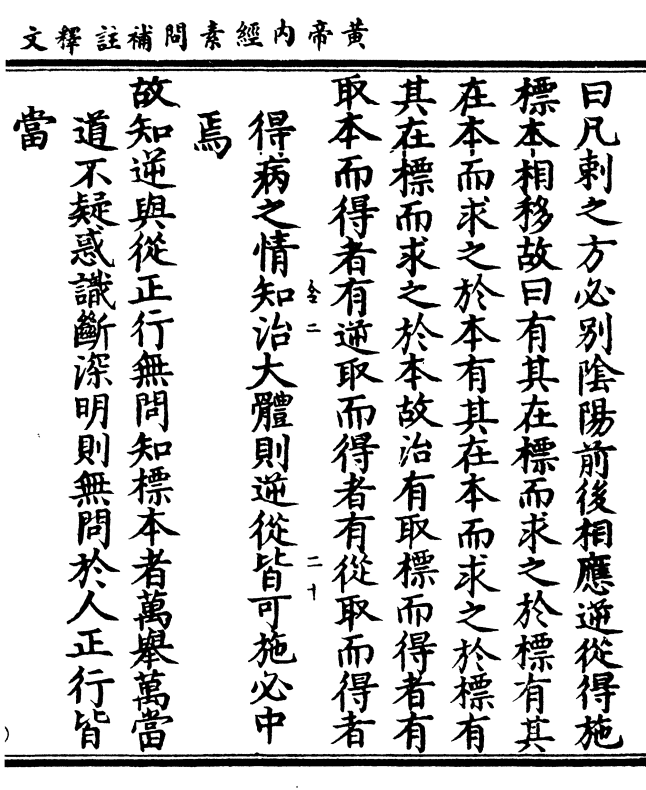 黃帝內經素問補註釋文
曰凡刺之方必別陰陽前後相應逆從得施
標本相移故曰有其在標而求之於標有其
在本而求之於本有其在本而求之於標有
其在標而求之於本故治有取標而得者有
取本而得者有逆取而得者有從取而得者
得病之情知治大體則逆從皆可施必中
焉
故知逆與從正行無問知標本者萬舉萬當
道不疑惑識斷深明則無問於人正行皆
當